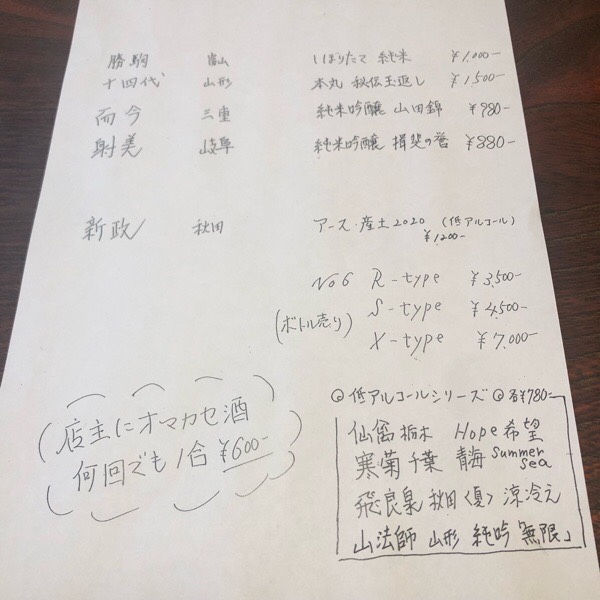 勝駒 富山 しぼりたて 純米 ¥1,000-
十四代 山形 本丸 秘伝玉返し ¥1,500-
而今 三重 純米吟醸 山田錦 ¥980-
射美 岐阜 純米吟醸 揖斐の誉 ¥880-
新政 秋田 アース・産土2020 (低アルコール)
¥1,200-
No6 R-type ¥3,500-
(ボトル売り) S-type ¥4,500-
X-type ¥7,000-
店主にオマカセ酒
何回でも1合 ¥600-
◎低アルコールシリーズ◎各¥780-
仙禽 栃木 Hope 希望
寒菊 千葉 青海 Summer sea
飛良泉 秋田 〈夏〉 涼冷え
山法師 山形 純吟「無限」